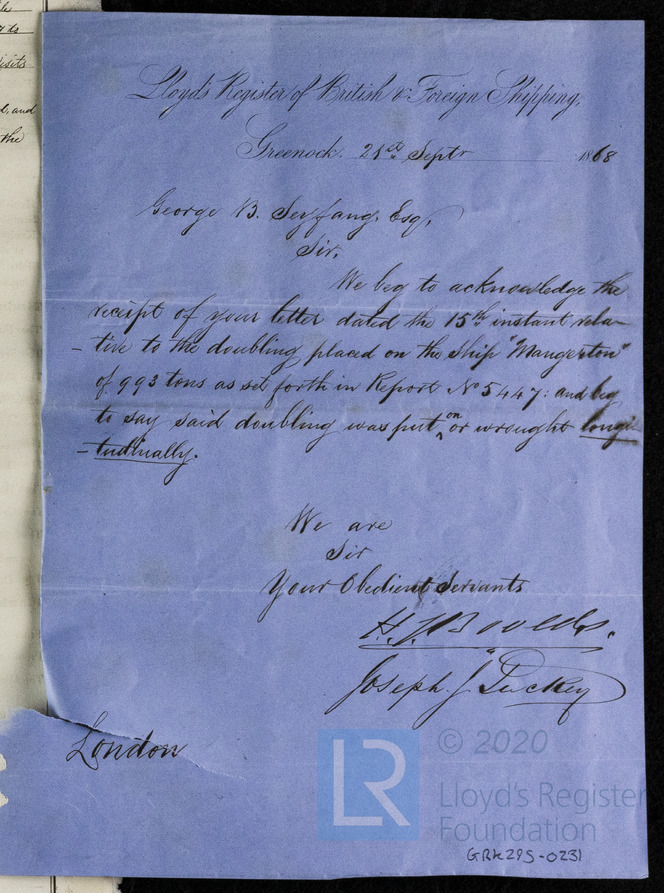 le
sits
d, and
the
Lloyd's Register of British & Foreign Shipping.
Greenock. 21st Septr 1868
George B. Seyfang, Esq,
Sir,
We beg to acknowledge the
receipt of your letter dated the 15th instant rela-
-tive to the doubling placed on the Ship "Mangerton"
of 993 tons as set forth in Report No 5447: and beg
to say said doubling was put on or wrought longi-
-tudinally.
We are
Sir
Your Obedient Servants
H. J. Boolds.
Joseph. J. Tuckey
London
LR
© 2020
Lloyd's Register
Foundation
GRK295-0231